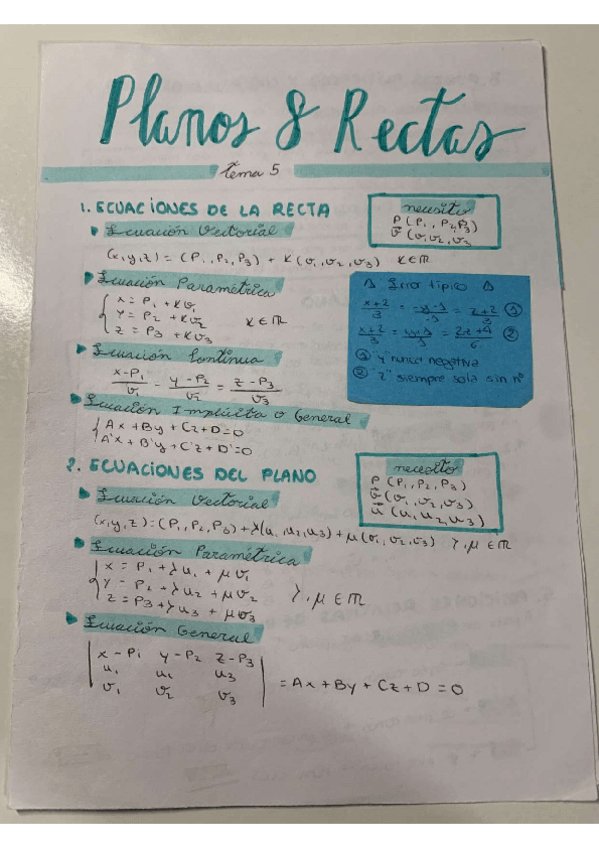 Planos & Rectas
tema 5
1. ECUACIONES DE LA RECTA
necesito
P (P₁, P₂, P₃)
v⃗ (v₁, v₂, v₃
Ecuación Vectorial
(x,y,z) = (P₁, P₂, P₃) + K(v₁, v₂, v₃) K∈ℝ
Ecuación Paramétrica
x = P₁ + Kv₁
Y = P₂ + Kv₂ K∈ℝ
z = P₃ + Kv₃
⚠ Error típico ⚠
x+2/3 = -y-1/-3 = z+2/3 ①
x+2/3 = y-1/3 = 2z+4/6 ②
① "y" nunca negativa
② "z" siempre sola sin nº
Ecuación Continua
x-P₁/v₁ = y-P₂/v₂ = z-P₃/v₃
Ecuación Implícita o General
Ax + By + Cz + D = 0
A'x + B'y + C'z + D' = 0
2. ECUACIONES DEL PLANO
necesito
P (P₁, P₂, P₃)
v⃗ (v₁, v₂, v₃)
u⃗ (u₁, u₂, u₃)
Ecuación Vectorial
(x,y,z) = (P₁, P₂, P₃) + λ(u₁, u₂, u₃) + μ(v₁, v₂, v₃) λ, μ ∈ ℝ
Ecuación Paramétrica
x = P₁ + λu₁ + μv₁
Y = P₂ + λu₂ + μv₂ λ, μ ∈ ℝ
z = P3 + λu₃ + μv₃
Ecuación General
| x-P₁ y-P₂ z-P₃ |
| u₁ u₂ u₃ | = Ax + By + Cz + D = 0
| v₁ v₂ v₃ |